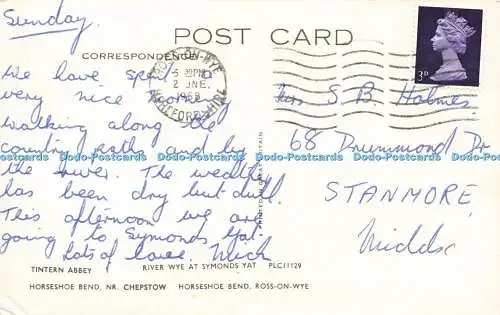 Sunday.
POST CARD
CORRESPONDENCE
ROSS-ON-WYE
5 30PM
2 JNE
HEREFORDSHIRE
3D
We have spent a
very nice morning
walking along the
country paths and by
the river. The weather
has been dry but dull.
This afternoon we are
going to Symonds Yat.
Lots of love. Mick
Mrs S. B. Holmes
68 Drummond Dr
STANMORE,
Middx
Dodo-Postcards Dodo-Postcards Dodo-Postcards Dodo-Postcards Dodo-Postcards
PRINTED IN GREAT BRITAIN
TINTERN ABBEY RIVER WYE AT SYMONDS YAT PLC11129
HORSESHOE BEND, NR. CHEPSTOW HORSESHOE BEND, ROSS-ON-WYE